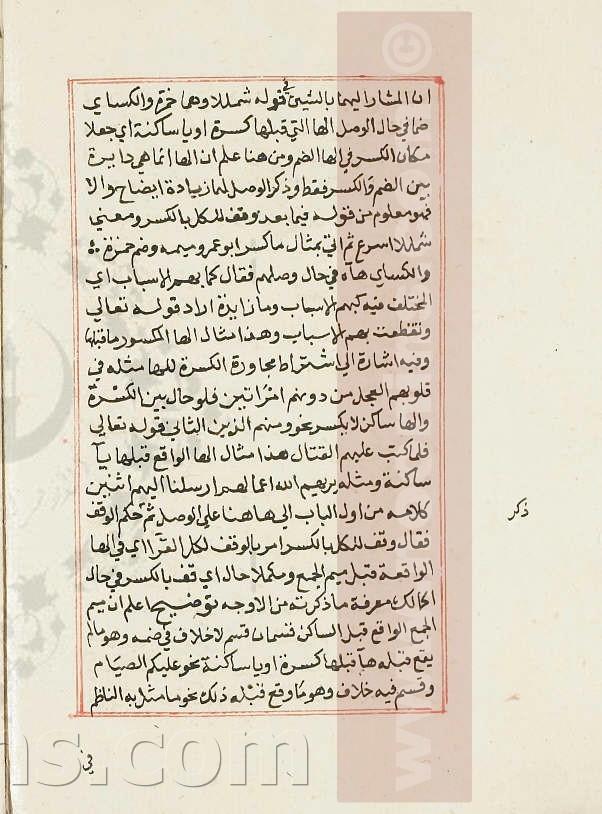 ان المشار اليهما بالشين في قوله شمللا وهما حمزة والكساي
ضما في حال الوصل الها التي قبلها كسرة او يا ساكنة اي جعلا
مكان الكسر في الها الضم ومن هنا علم ان الها انما هي دايرة
بين الضم والكسر فقط وذكر الوصل لها زيادة ايضاح والا
فهو معلوم من قوله فيما بعد وقف للكل بالكسر ومعني
شمللا اسرع ثم اتي بمثال ما كسر ابو عمرو ميمه وضم حمزة
والكساي هآه في حال وصلهم فقال كما بهم الاسباب اي
المختلف فيه كبهم الاسباب وما زايدة اراد قوله تعالي
وتقطعت بهم الاسباب وهذا مثال الها المكسور ما قبلها
وفيه اشارة الي اشتراط مجاورة الكسرة للها مثله في
قلوبهم العجل من دونهم امرأتين فلو حال بين الكسرة
والها ساكن لا يكسر نحو ومنهم الذين الثاني قوله تعالي
فلما كتب عليهم القتال هذا مثال الها الواقع قبلها يآ
ساكنة ومثله يريهم الله اعمالهم ارسلنا اليهم اثنين
كلامه من اول الباب الي هاهنا علي الوصل ثم حكم الوقف
فقال وقف للكل بالكسر امر بالوقف لكل القرا اي في الها
الواقعة قبل ميم الجمع ومكملا حال اي قف بالكسر في حال
اكمالك معرفة ما ذكرته من الاوجه توضيح اعلم ان ميم
الجمع الواقع قبل الساكن قسمان قسم لا خلاف في ضمه وهو ما لم
يقع قبله هآ قبلها كسرة او يا ساكنة نحو عليكم الصيام
وقسم فيه خلاف وهو ما وقع قبله ذلك نحو ما مثل به الناظم
ذكر
في
ns.com